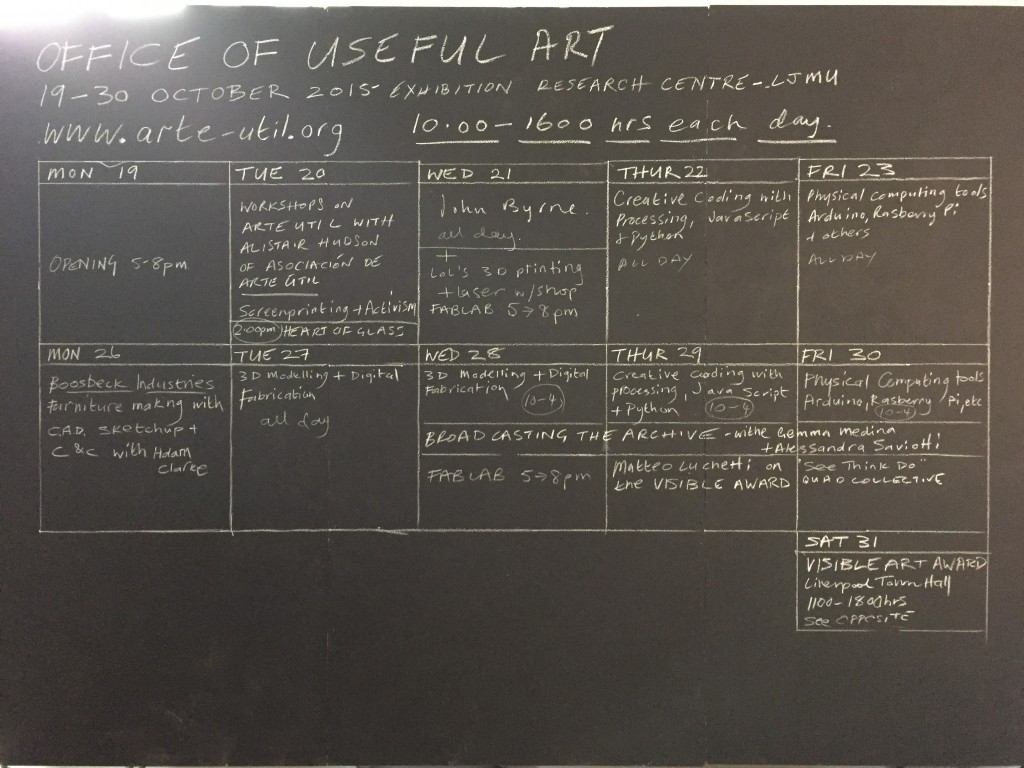 OFFICE OF USEFUL ART
19-30 OCTOBER 2015- EXHIBITION RESEARCH CENTRE-LJMU
www.arte-util.org 10.00-1600 hrs each day.
MON 19
OPENING 5-8pm
TUE 20
WORKSHOPS ON
ARTE UTIL WITH
ALISTAIR HUDSON
OF ASOCIACIÓN DE
ARTE ÚTIL
Screenprinting + Activism
2:00pm HEART OF GLASS
WED 21
John Byrne.
all day.
+
LOL'S 3D printing
+ laser w/shop
FABLAB 5→8pm
THUR 22
Creative Coding with
Processing, JavaScript
+ Python
ALL DAY
FRI 23
Physical computing tools
Arduino, Rasberry Pi
+ others
ALL DAY
MON 26
Boosbeck Industries
furniture making with
C.A.D, Sketchup +
C&C with Adam
Clarke
TUE 27
3D Modelling + Digital
Fabrication
all day
WED 28
3D Modelling + Digital
Fabrication 10-4
THUR 29
Creative Coding with
processing, Java Script
+ Python 10-4
FRI 30
Physical Computing tools
Arduino, Rasberry Pi, etc
10-4
BROADCASTING THE ARCHIVE - withe Gemma Medina
+ Alessandra Saviotti
FABLAB 5→8pm
Matteo Luchetti on
the VISIBLE AWARD
"See Think Do"
QUAD COLLECTIVE
SAT 31
VISIBLE ART AWARD
Liverpool Town Hall
1100-1800hrs
See OPPOSITE